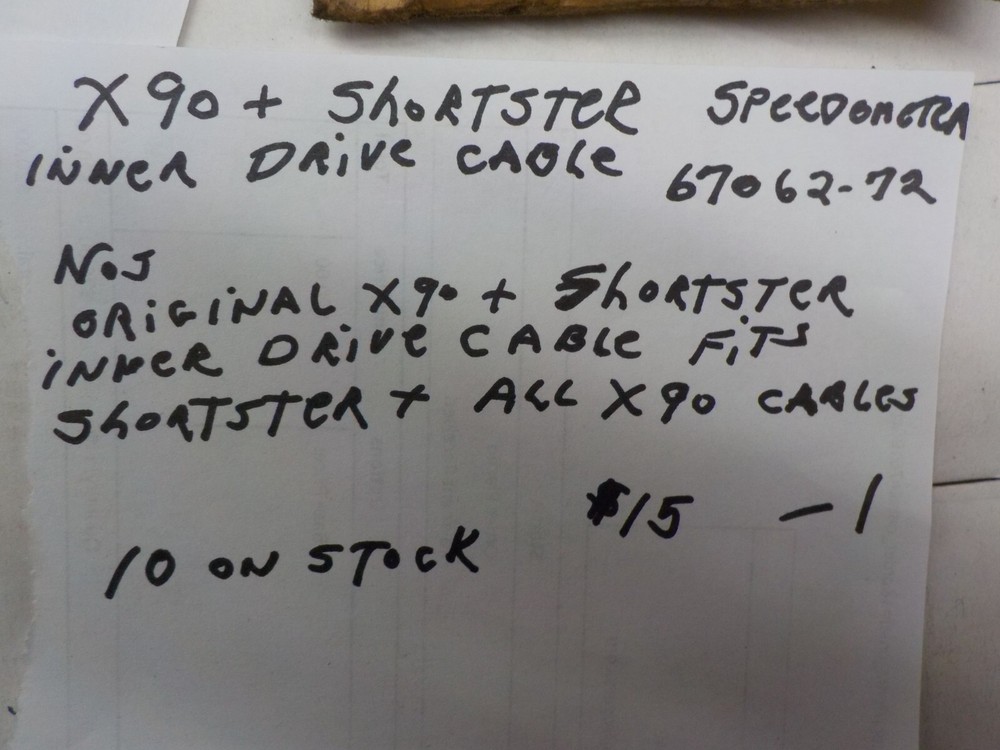 X90 + SHORTSTER SPEEDOMETER
INNER DRIVE CABLE 67062-72
NOS
ORIGINAL X90 + SHORTSTER
INNER DRIVE CABLE FITS
SHORTSTER + ALL X90 CABLES
$15 - 1
10 ON STOCK